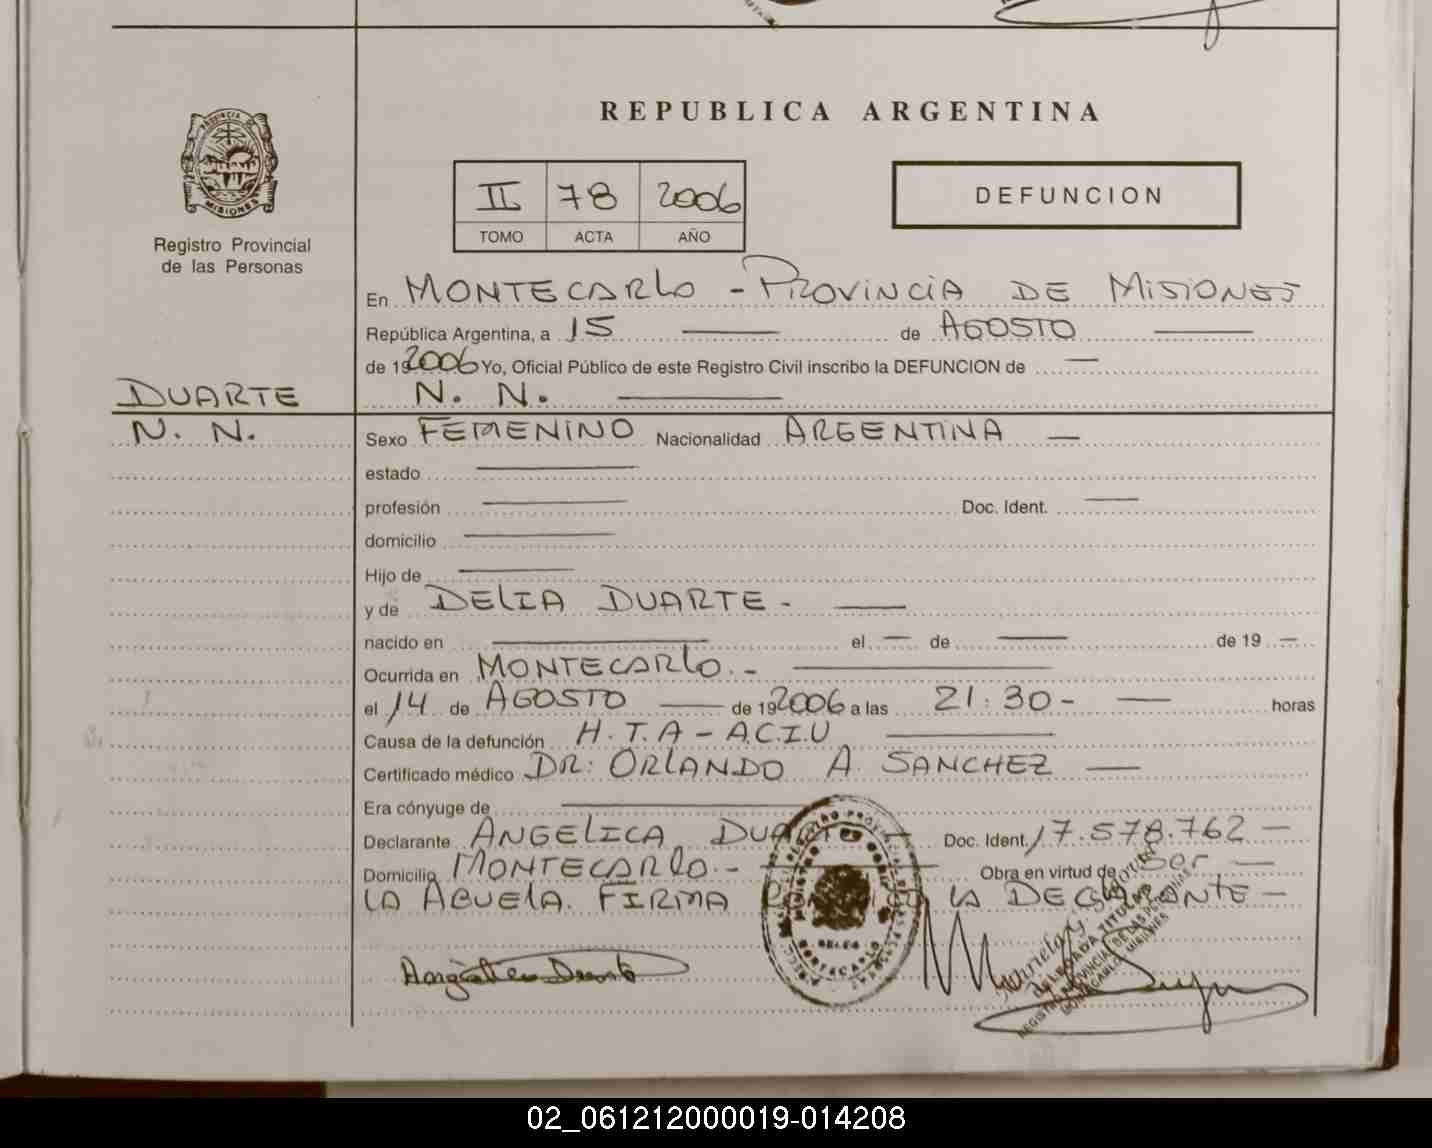 REPUBLICA ARGENTINA
PROVINCIA DE
MISIONES
Registro Provincial
de las Personas
II 78 2006
TOMO ACTA AÑO
DEFUNCION
En MONTECARLO - PROVINCIA DE MISIONES
República Argentina, a 15 de AGOSTO
de 192006 Yo, Oficial Público de este Registro Civil inscribo la DEFUNCION de
DUARTE N. N.
N. N. Sexo FEMENINO Nacionalidad ARGENTINA
estado
profesión Doc. Ident.
domicilio
Hijo de
y de DELIA DUARTE -
nacido en el de de 19
Ocurrida en MONTECARLO.-
el 14 de AGOSTO de 192006 a las 21:30- horas
Causa de la defunción H.T.A - A.C.I.U
Certificado médico DR: ORLANDO A. SANCHEZ
Era cónyuge de
Declarante ANGELICA DUARTE Doc. Ident. 17.578.762
Domicilio MONTECARLO.- Obra en virtud de Ser
LA ABUELA. FIRMA LA DECLARANTE
Angelica Duarte
DELEGADA TITULAR
REGISTRO PROVINCIAL DE LAS PERSONAS
MONTECARLO MISIONES
02_061212000019-014208